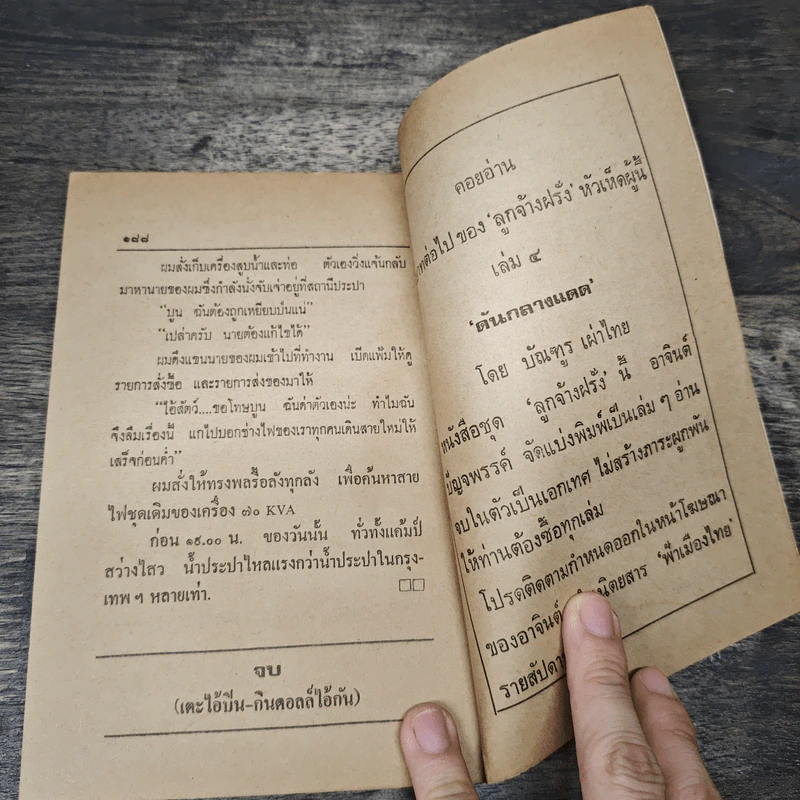 ๑๘๘
ผมสั่งเก็บเครื่องสูบน้ำและท่อ ตัวเองวิ่งแจ้นกลับ
มาหานายของผมซึ่งกำลังนั่งจับเจ่าอยู่ที่สถานีประปา
“บูน ฉันต้องถูกเหยียบป่นแน่”
“เปล่าครับ นายต้องแก้ไขได้”
ผมดึงแขนนายของผมเข้าไปที่ทำงาน เปิดแฟ้มให้ดู
รายการสั่งซื้อ และรายการส่งของมาให้
“ไอ้สัตว์....ขอโทษบูน ฉันด่าตัวเองน่ะ ทำไมฉัน
จึงลืมเรื่องนี้ แกไปบอกช่างไฟของเราทุกคนเดินสายใหม่ให้
เสร็จก่อนค่ำ”
ผมสั่งให้ทรงพลรื้อลังทุกลัง เพื่อค้นหาสาย
ไฟชุดเดิมของเครื่อง ๗๐ KVA
ก่อน ๑๙.๐๐ น. ของวันนั้น ทั่วทั้งแค้มป์
สว่างไสว น้ำประปาไหลแรงกว่าน้ำประปาในกรุง-
เทพ ๆ หลายเท่า.
จบ
(เตะไอ้ปืน-กินดอลล์ไอ้กัน)
คอยอ่าน
ต่อไป ของ ‘ลูกจ้างฝรั่ง’ หัวเห็ดผู้นี้
เล่ม ๔
‘ดันกลางแดด’
โดย บัณฑูร เผ่าไทย
หนังสือชุด ‘ลูกจ้างฝรั่ง’ นี้ อาจินต์
ปัญจพรรค์ จัดแบ่งพิมพ์เป็นเล่ม ๆ อ่าน
จบในตัวเป็นเอกเทศ ไม่สร้างภาระผูกพัน
ให้ท่านต้องซื้อทุกเล่ม
โปรดติดตามกำหนดออกในหน้าโฆษณา
ของอาจินต์ นิตยสาร ‘ฟ้าเมืองไทย’